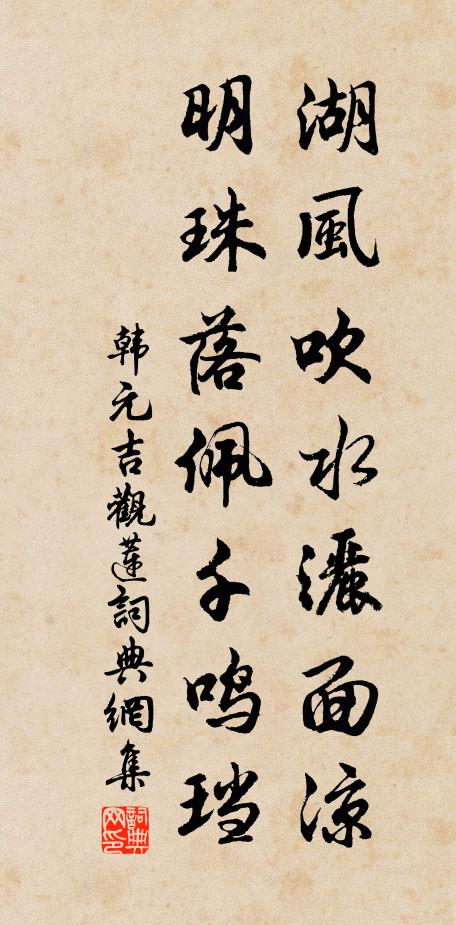 湖風吹水灑面涼
明珠落佩千鳴珰
韩元吉觀蓮詞典網集
詞典
网印